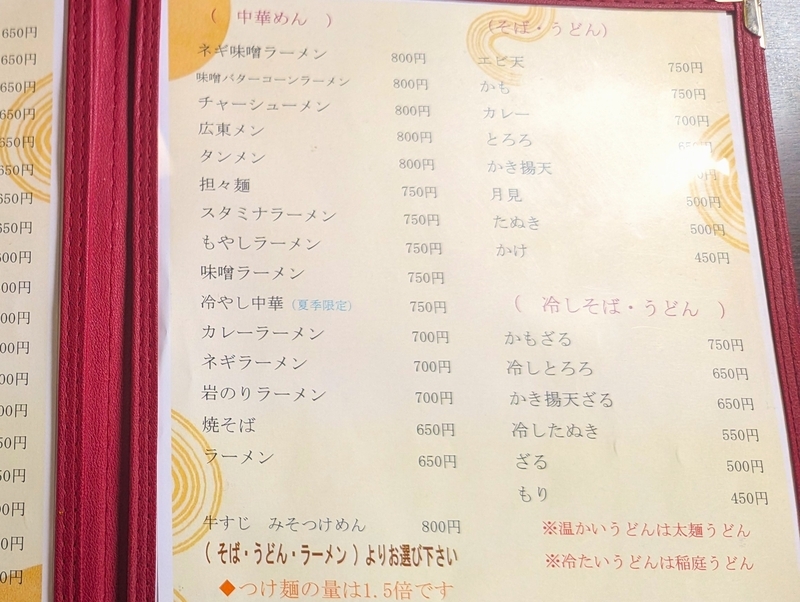 650円
650円
650円
650円
650円
650円
650円
650円
（ 中華めん ）
ネギ味噌ラーメン 800円
味噌バターコーンラーメン 800円
チャーシューメン 800円
広東メン 800円
タンメン 800円
担々麺 750円
スタミナラーメン 750円
もやしラーメン 750円
味噌ラーメン 750円
冷やし中華（夏季限定） 750円
カレーラーメン 700円
ネギラーメン 700円
岩のりラーメン 700円
焼そば 650円
ラーメン 650円
牛すじ みそつけめん 800円
（ そば・うどん・ラーメン ）よりお選び下さい
◆つけ麺の量は1.5倍です
（そば・うどん）
エビ天 750円
かも 750円
カレー 700円
とろろ
かき揚天
月見 500円
たぬき 500円
かけ 450円
（ 冷しそば・うどん ）
かもざる 750円
冷しとろろ 650円
かき揚天ざる 650円
冷したぬき 550円
ざる 500円
もり 450円
※温かいうどんは太麺うどん
※冷たいうどんは稲庭うどん